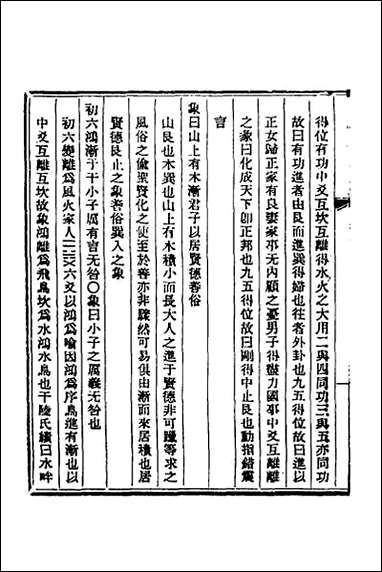 得位有功中爻互坎互離得水火之大用二與四同功三與五亦同功
故曰有功進者由艮而進巽得歸也往者外卦也九五得位故曰進以
正女歸正家有良妻家事无內顧之憂男子得盡力國事中爻互離離
之象曰化成天下卽正邦也九五得位故曰剛得中止艮也動指錯震
言
象曰山上有木漸君子以居賢德善俗
山艮也木巽也山上有木積小而長大人之進于賢德非可躐等求之
風俗之偷聖賢化之使至於善亦非驟然可易俱由漸而來居積也居
賢德艮止之象善俗巽入之象
初六鴻漸于干小子厲有言无咎○象曰小子之厲義无咎也
初六變離爲風火家人二三爻六爻以鴻爲喻因鴻爲序鳥進有漸也以
中爻互離互坎故象鴻離爲飛鳥坎爲水鴻水鳥也干陸氏績曰水畔